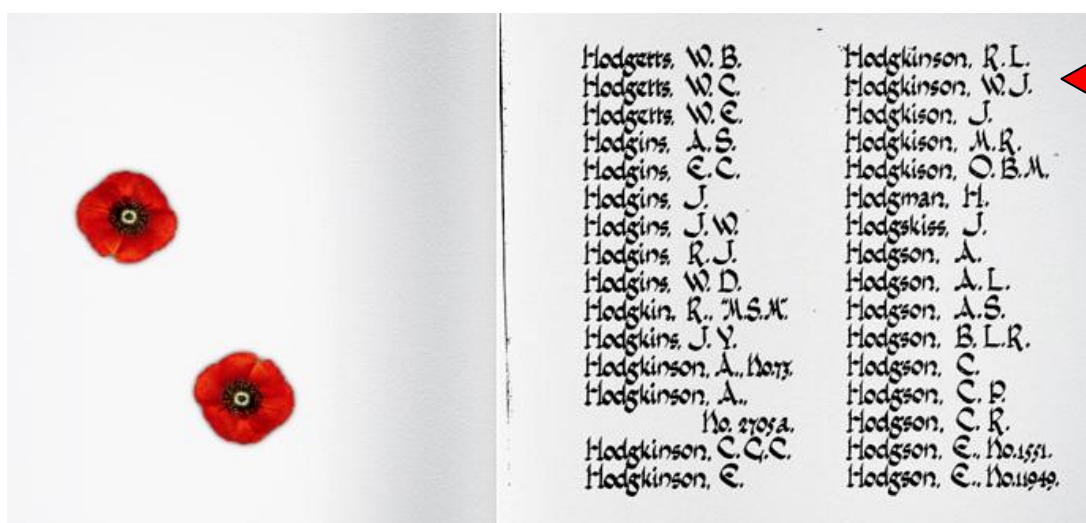 Hodgetts, W. B.
Hodgetts, W. C.
Hodgetts, W. E.
Hodgins, A. S.
Hodgins, E. C.
Hodgins, J.
Hodgins, J. W.
Hodgins, R. J.
Hodgins, W. D.
Hodgkin, R., "M.S.M".
Hodgkins, J. Y.
Hodgkinson, A., No. 73.
Hodgkinson, A.,
No. 2705a.
Hodgkinson, C. G. C.
Hodgkinson, E.
Hodgkinson, R. L.
Hodgkinson, W. J.
Hodgkison, J.
Hodgkison, M. R.
Hodgkison, O. B. M.
Hodgman, H.
Hodgskiss, J.
Hodgson, A.
Hodgson, A. L.
Hodgson, A. S.
Hodgson, B. L. R.
Hodgson, C.
Hodgson, C. P.
Hodgson, C. R.
Hodgson, E., No. 1551.
Hodgson, E., No. 11949.